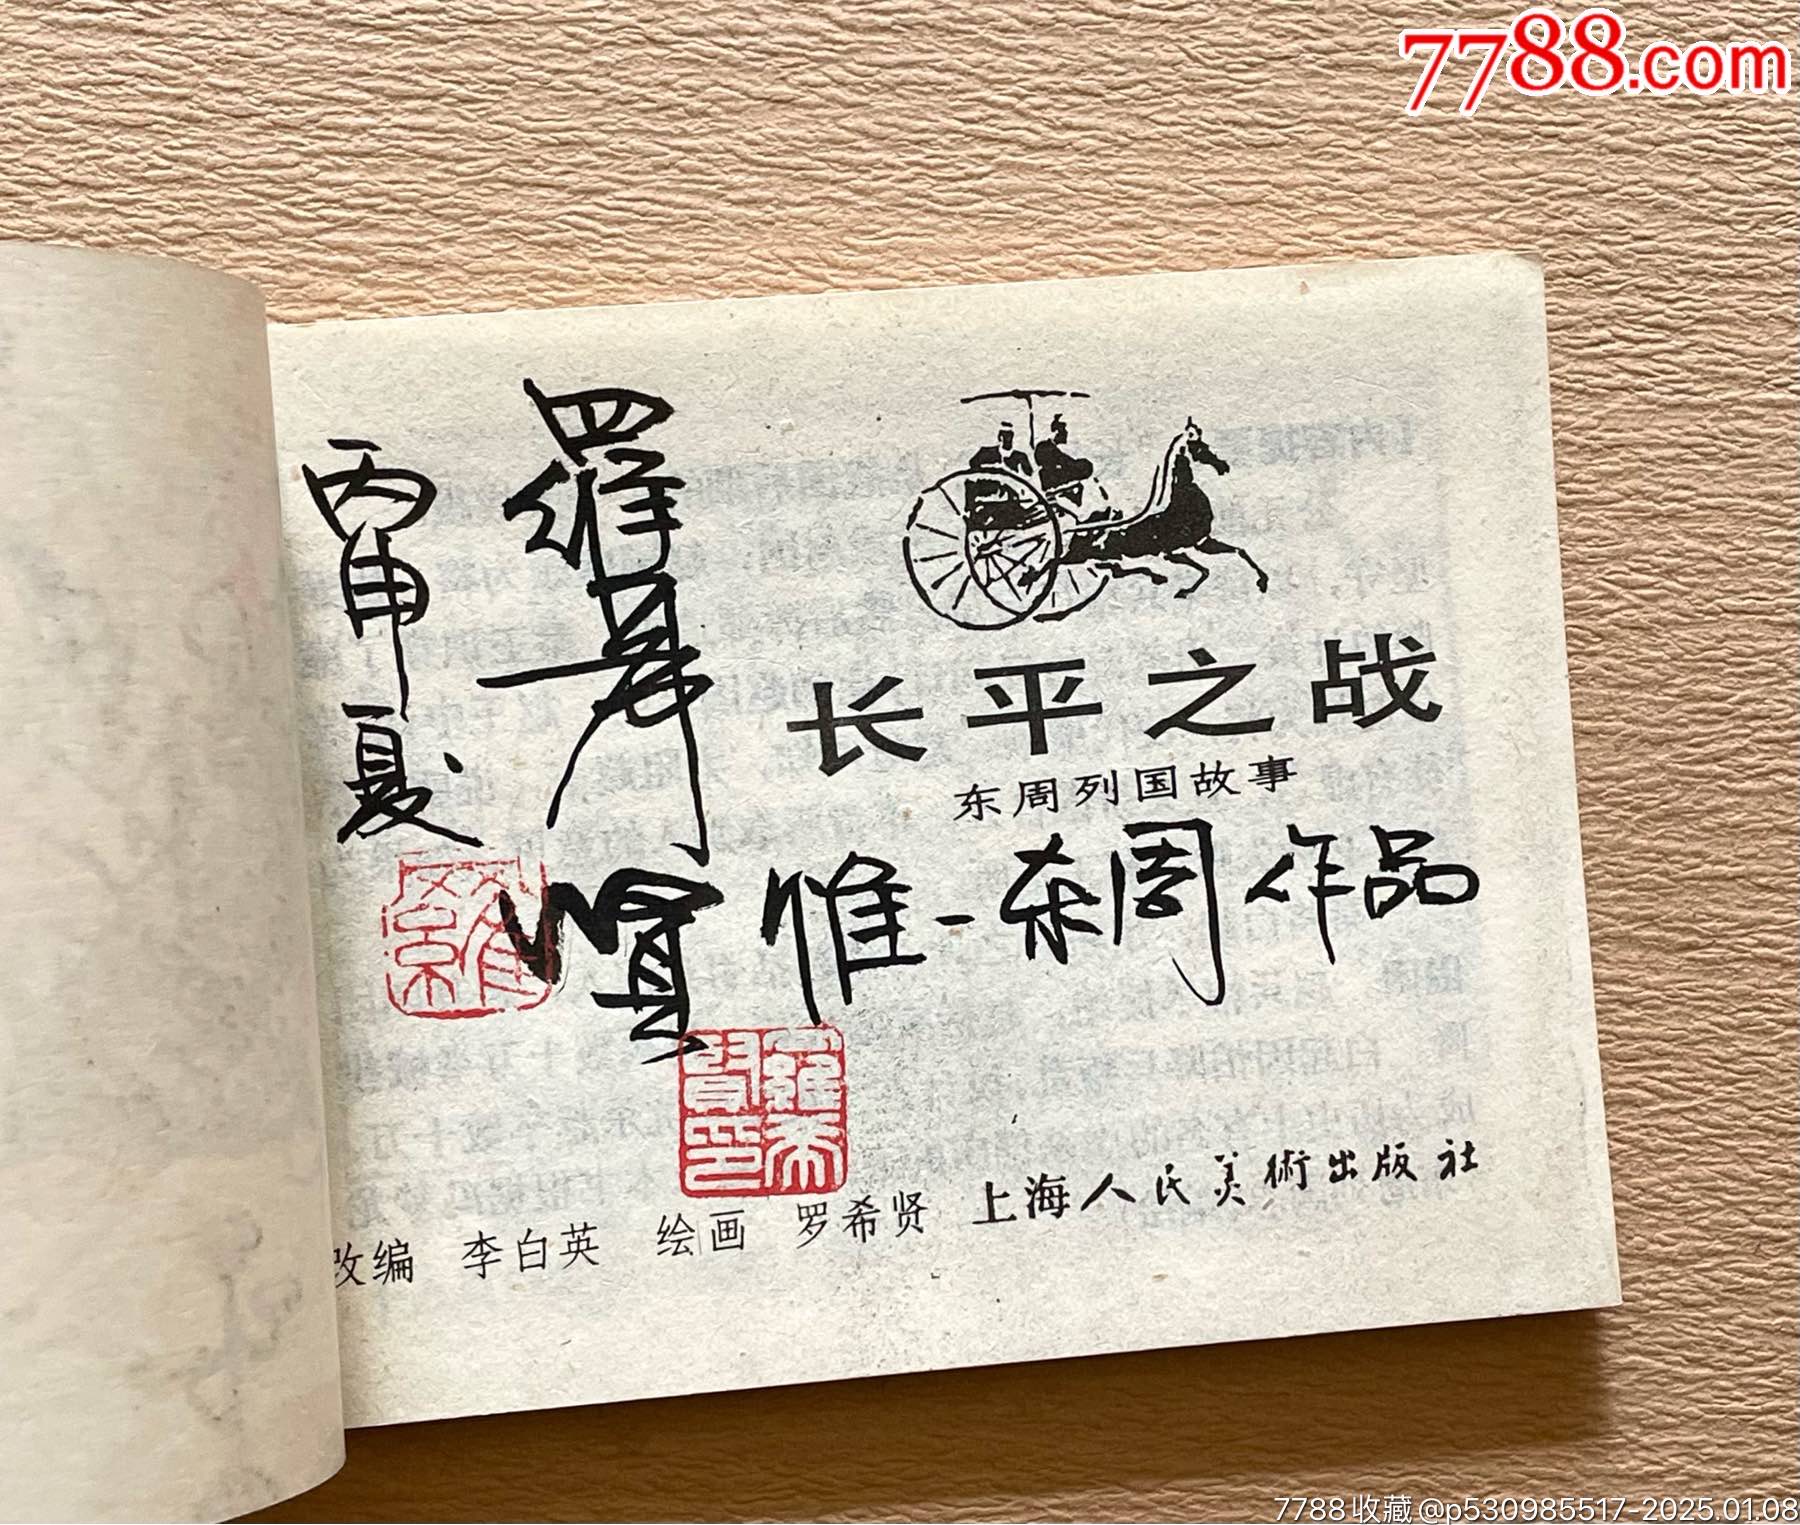 7788.com
长平之战
东周列国故事
惟一东周作品
羅希賢
丙申夏
羅
羅希賢印
改编 李白英 绘画 罗希贤 上海人民美術出版社
7788收藏@p530985517-2025.01.08